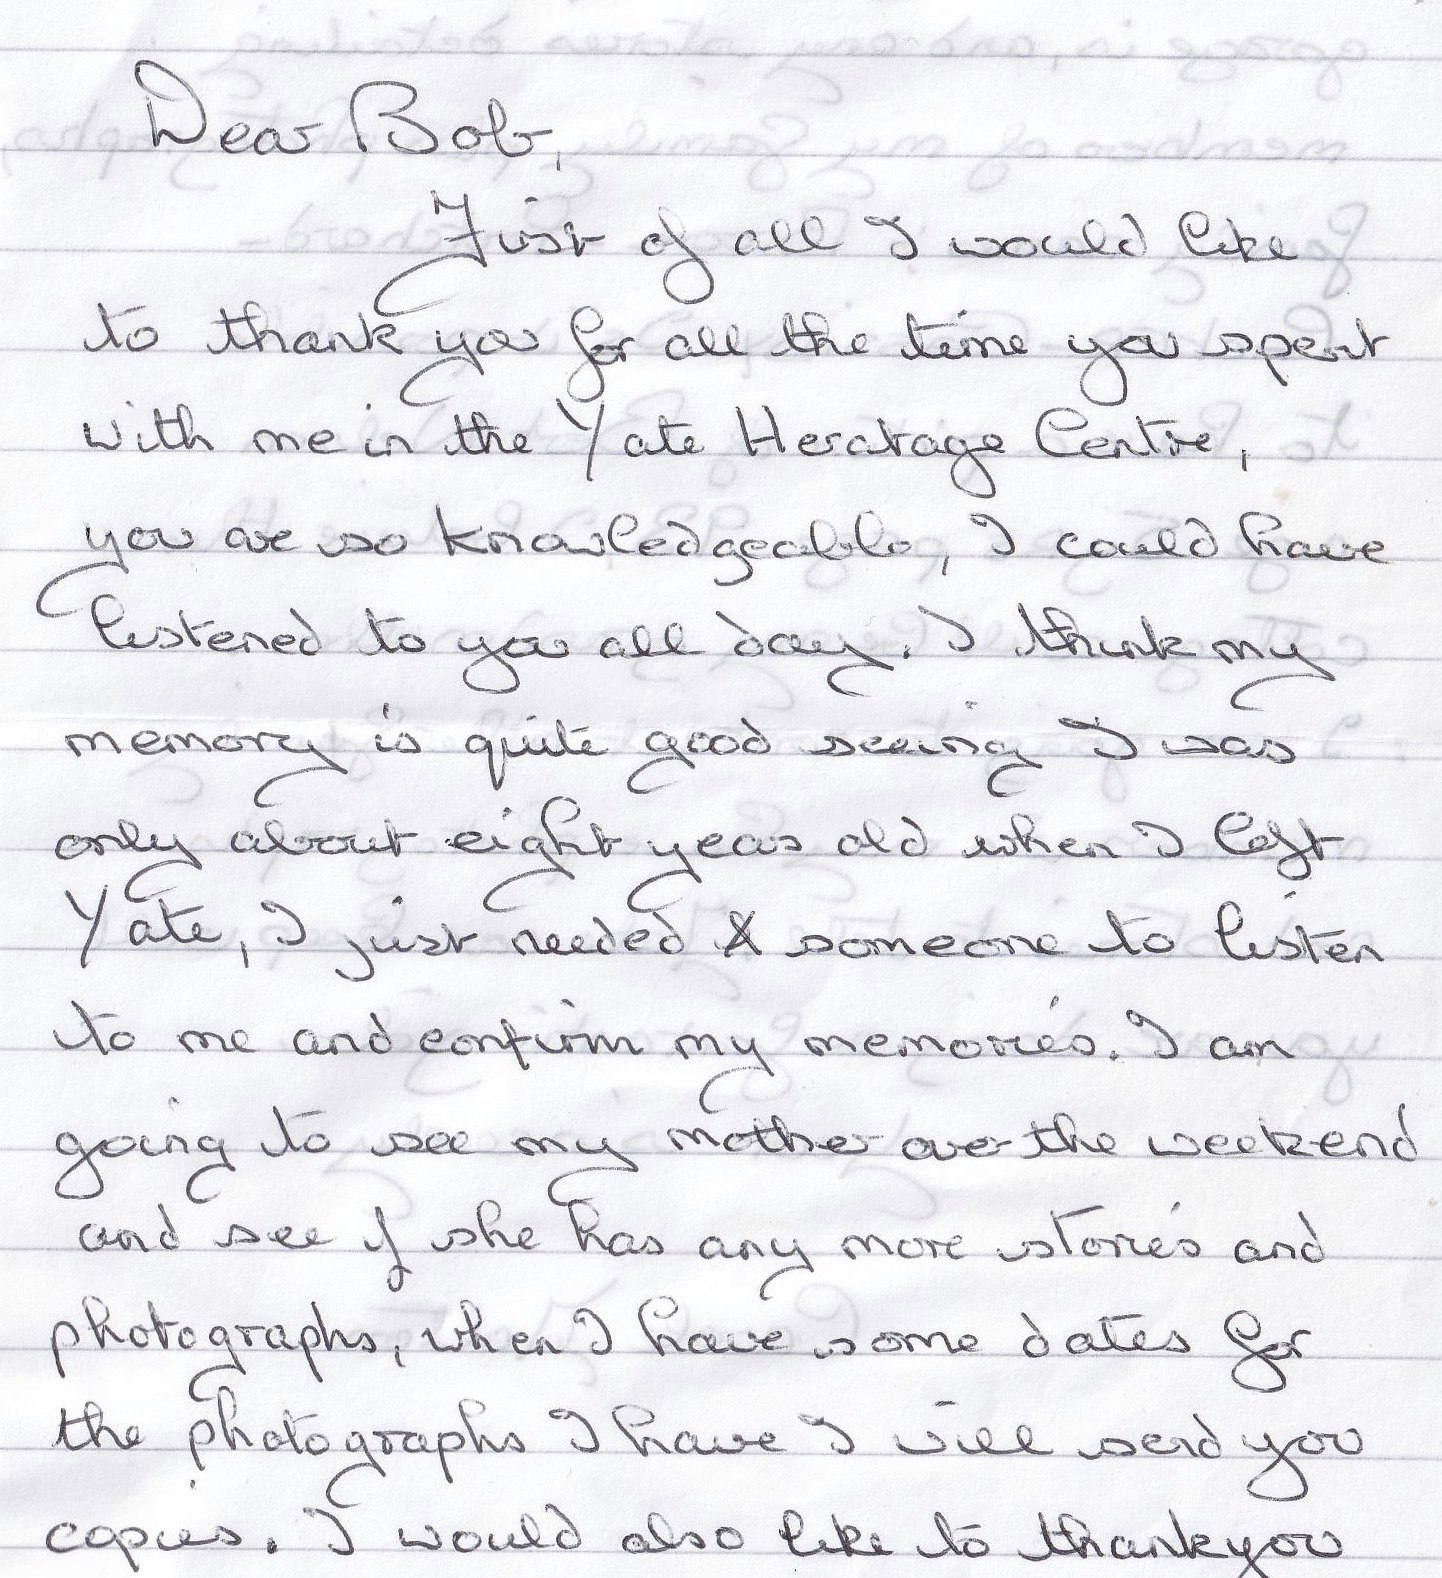 Dear Bob,
First of all I would like
to thank you for all the time you spent
with me in the Yate Heratage Centre,
you are so knowledgeable, I could have
listened to you all day. I think my
memory is quite good seeing I was
only about eight years old when I left
Yate, I just needed someone to listen
to me and confirm my memories. I am
going to see my mother over the weekend
and see if she has any more stories and
photographs, when I have some dates for
the photographs I have I will send you
copies. I would also like to thankyou